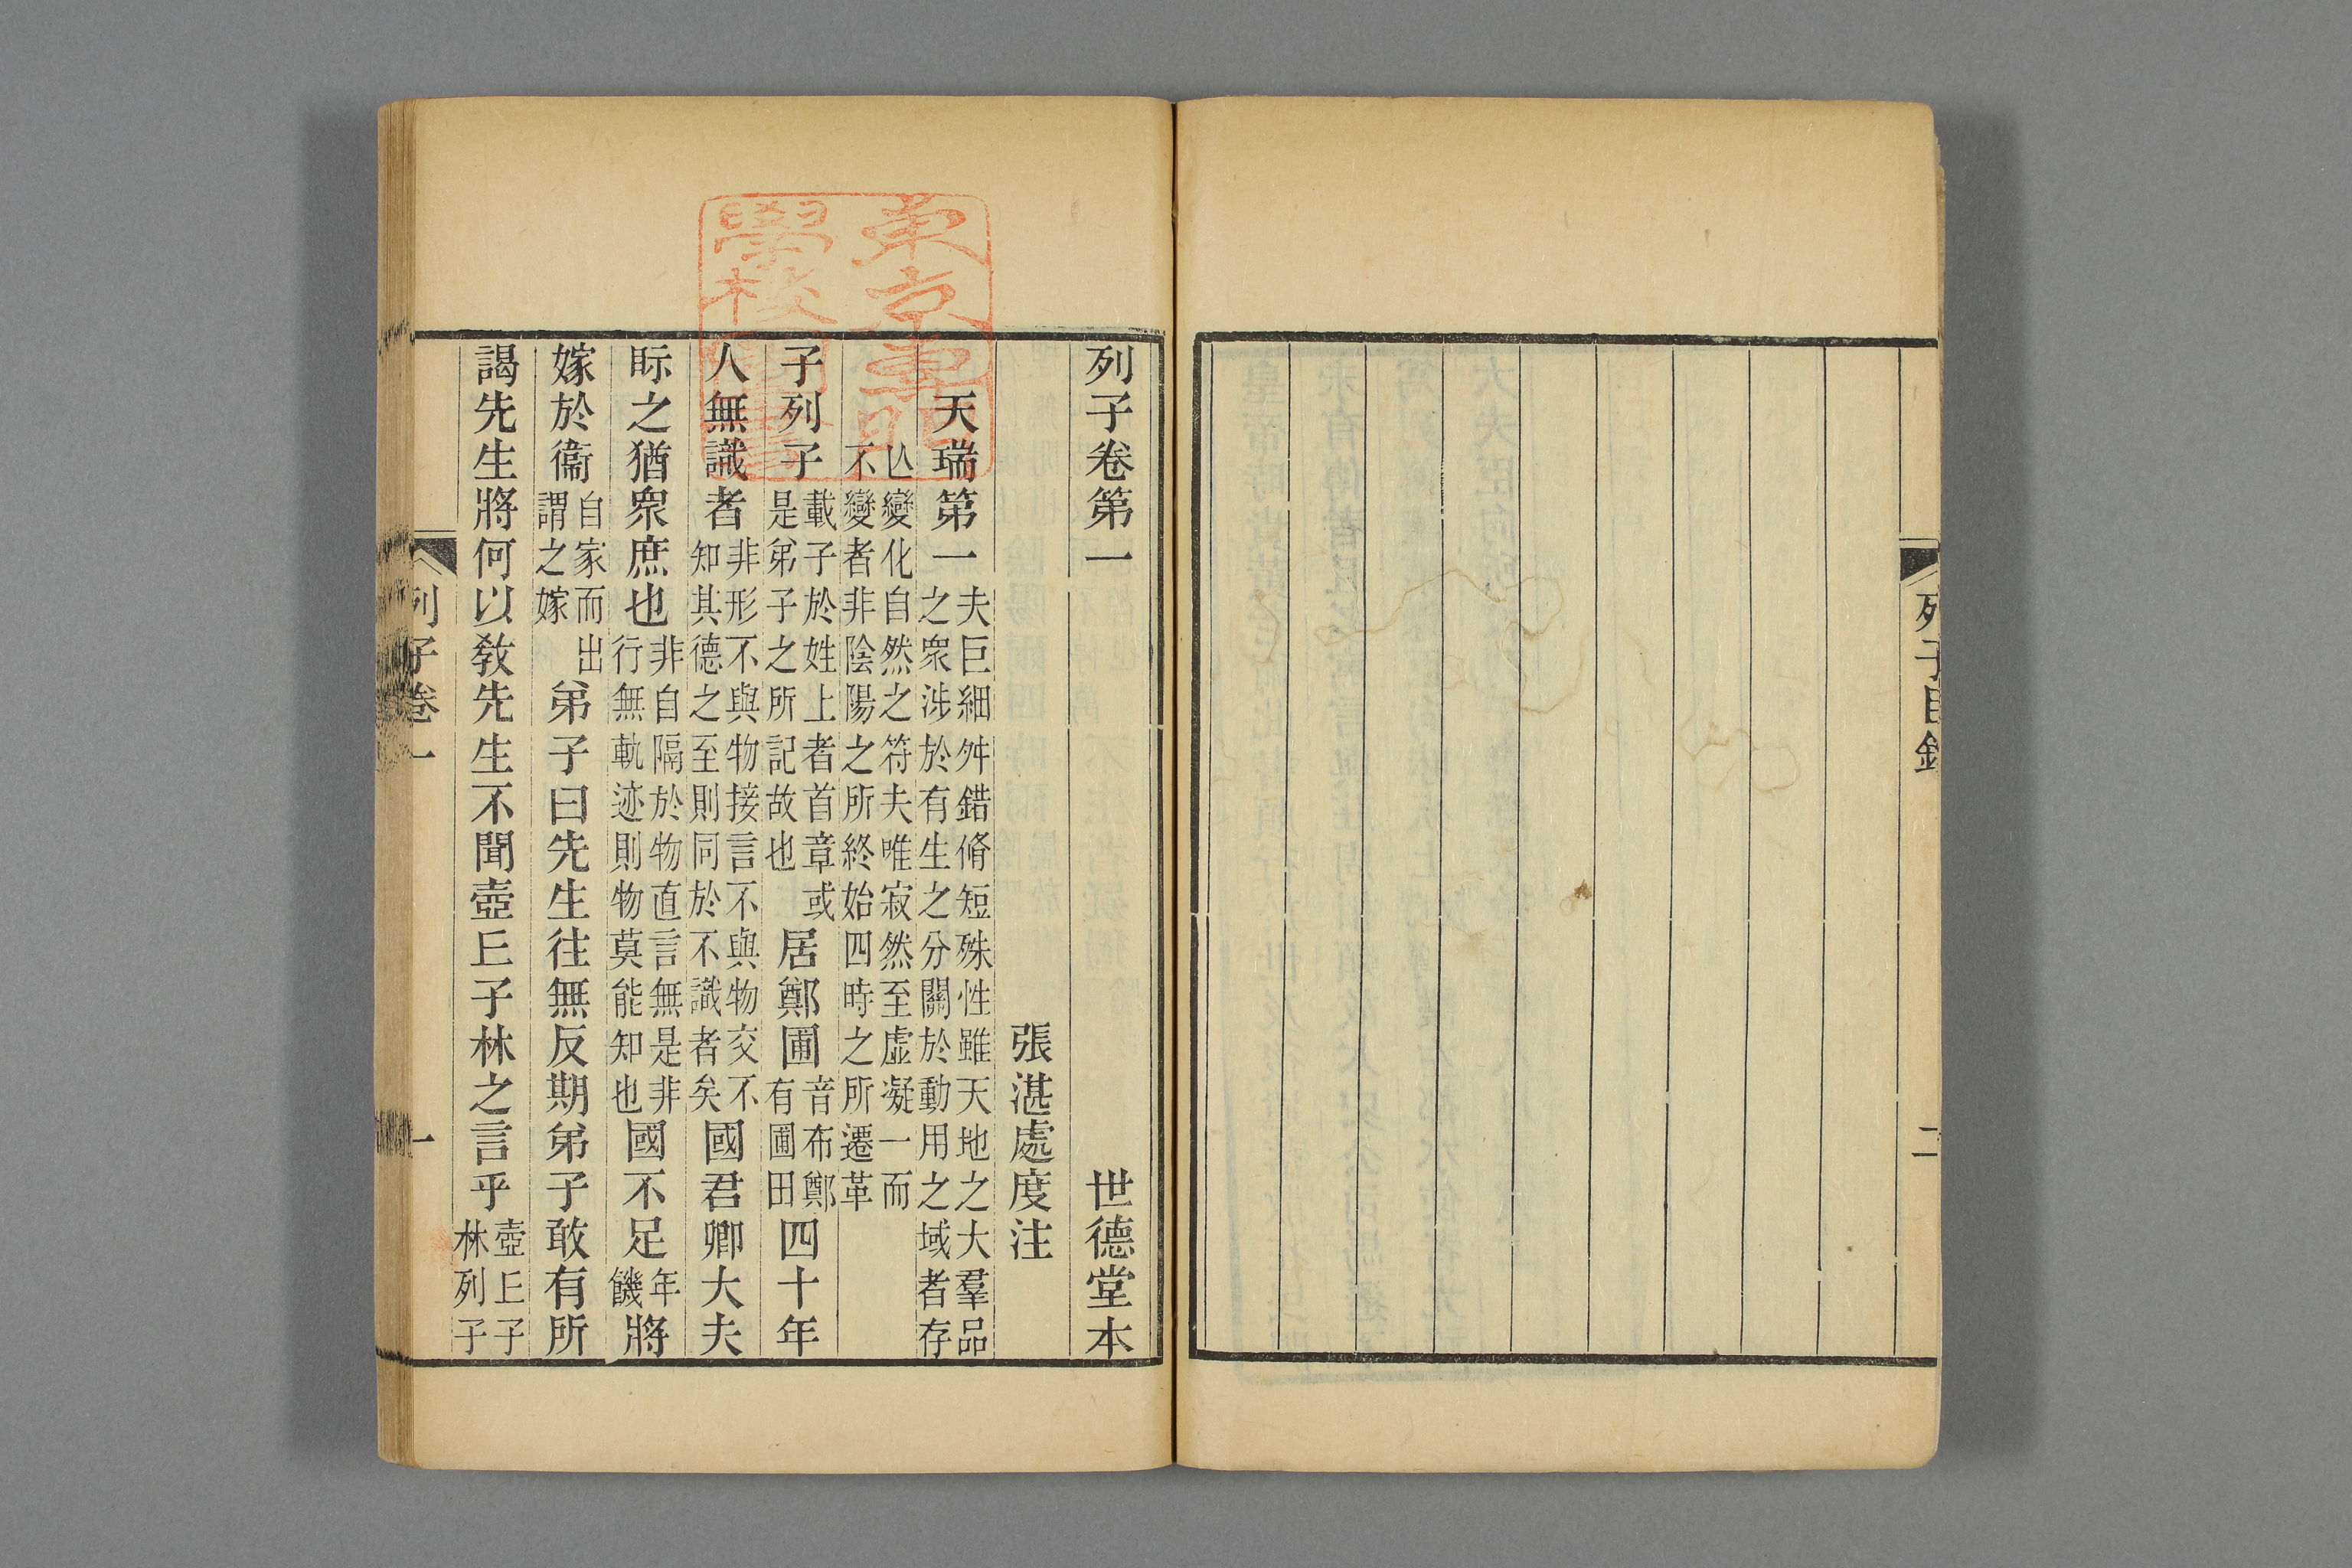 列子目錄
二
東京專門
學校圖書
列子卷第一 世德堂本
張湛處度注
天瑞第一 夫巨細舛錯脩短殊性雖天地之大羣品之衆涉於有生之分關於動用之域者存
亾變化自然之符夫唯寂然至虛凝一而不變者非陰陽之所終始四時之所遷革
子列子載子於姓上者首章或是弟子之所記故也居鄭圃音布鄭有圃田四十年
人無識者非形不與物接言不與物交不知其德之至則同於不識者矣國君卿大夫
眎之猶衆庶也非自隔於物直言無是非行無軌迹則物莫能知也國不足年饑將
嫁於衞自家而出謂之嫁弟子曰先生往無反期弟子敢有所
謁先生將何以敎先生不聞壺丘子林之言乎壺丘子林列子
列子卷一
一